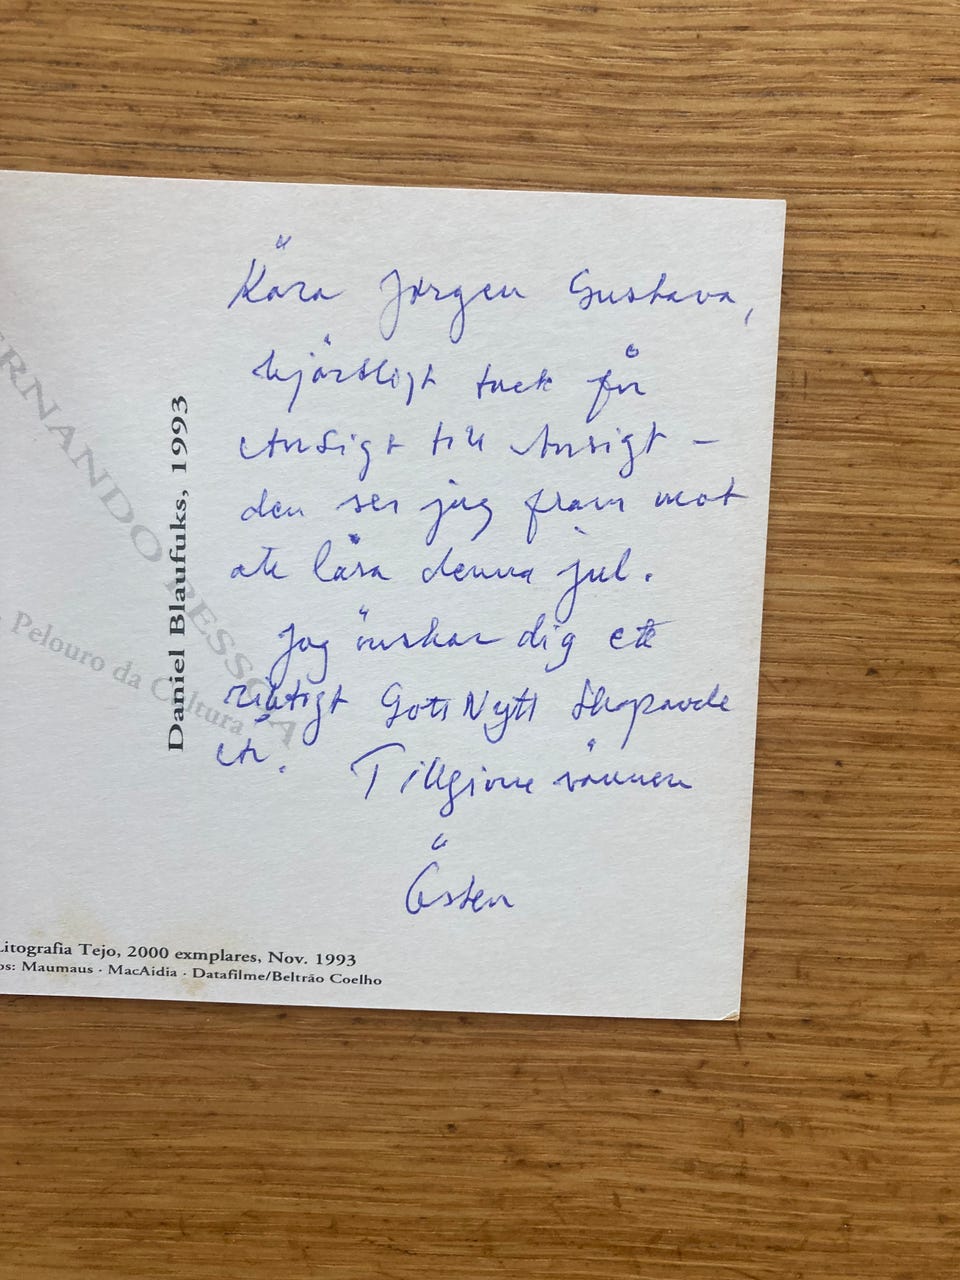 Kära Jörgen Gustava,
hjärtligt tack för
Ansigt till Ansigt –
den ser jag fram mot
att läsa denna jul.
Jag önskar dig ett
riktigt Gott Nytt Skapande
År. Tillgivne vännen
Östen
Daniel Blaufuks, 1993
ERNANDO PESSOA
Pelouro da Cultura
Litografia Tejo, 2000 exmplares, Nov. 1993
os: Maumaus · MacAidia · Datafilme/Beltrão Coelho